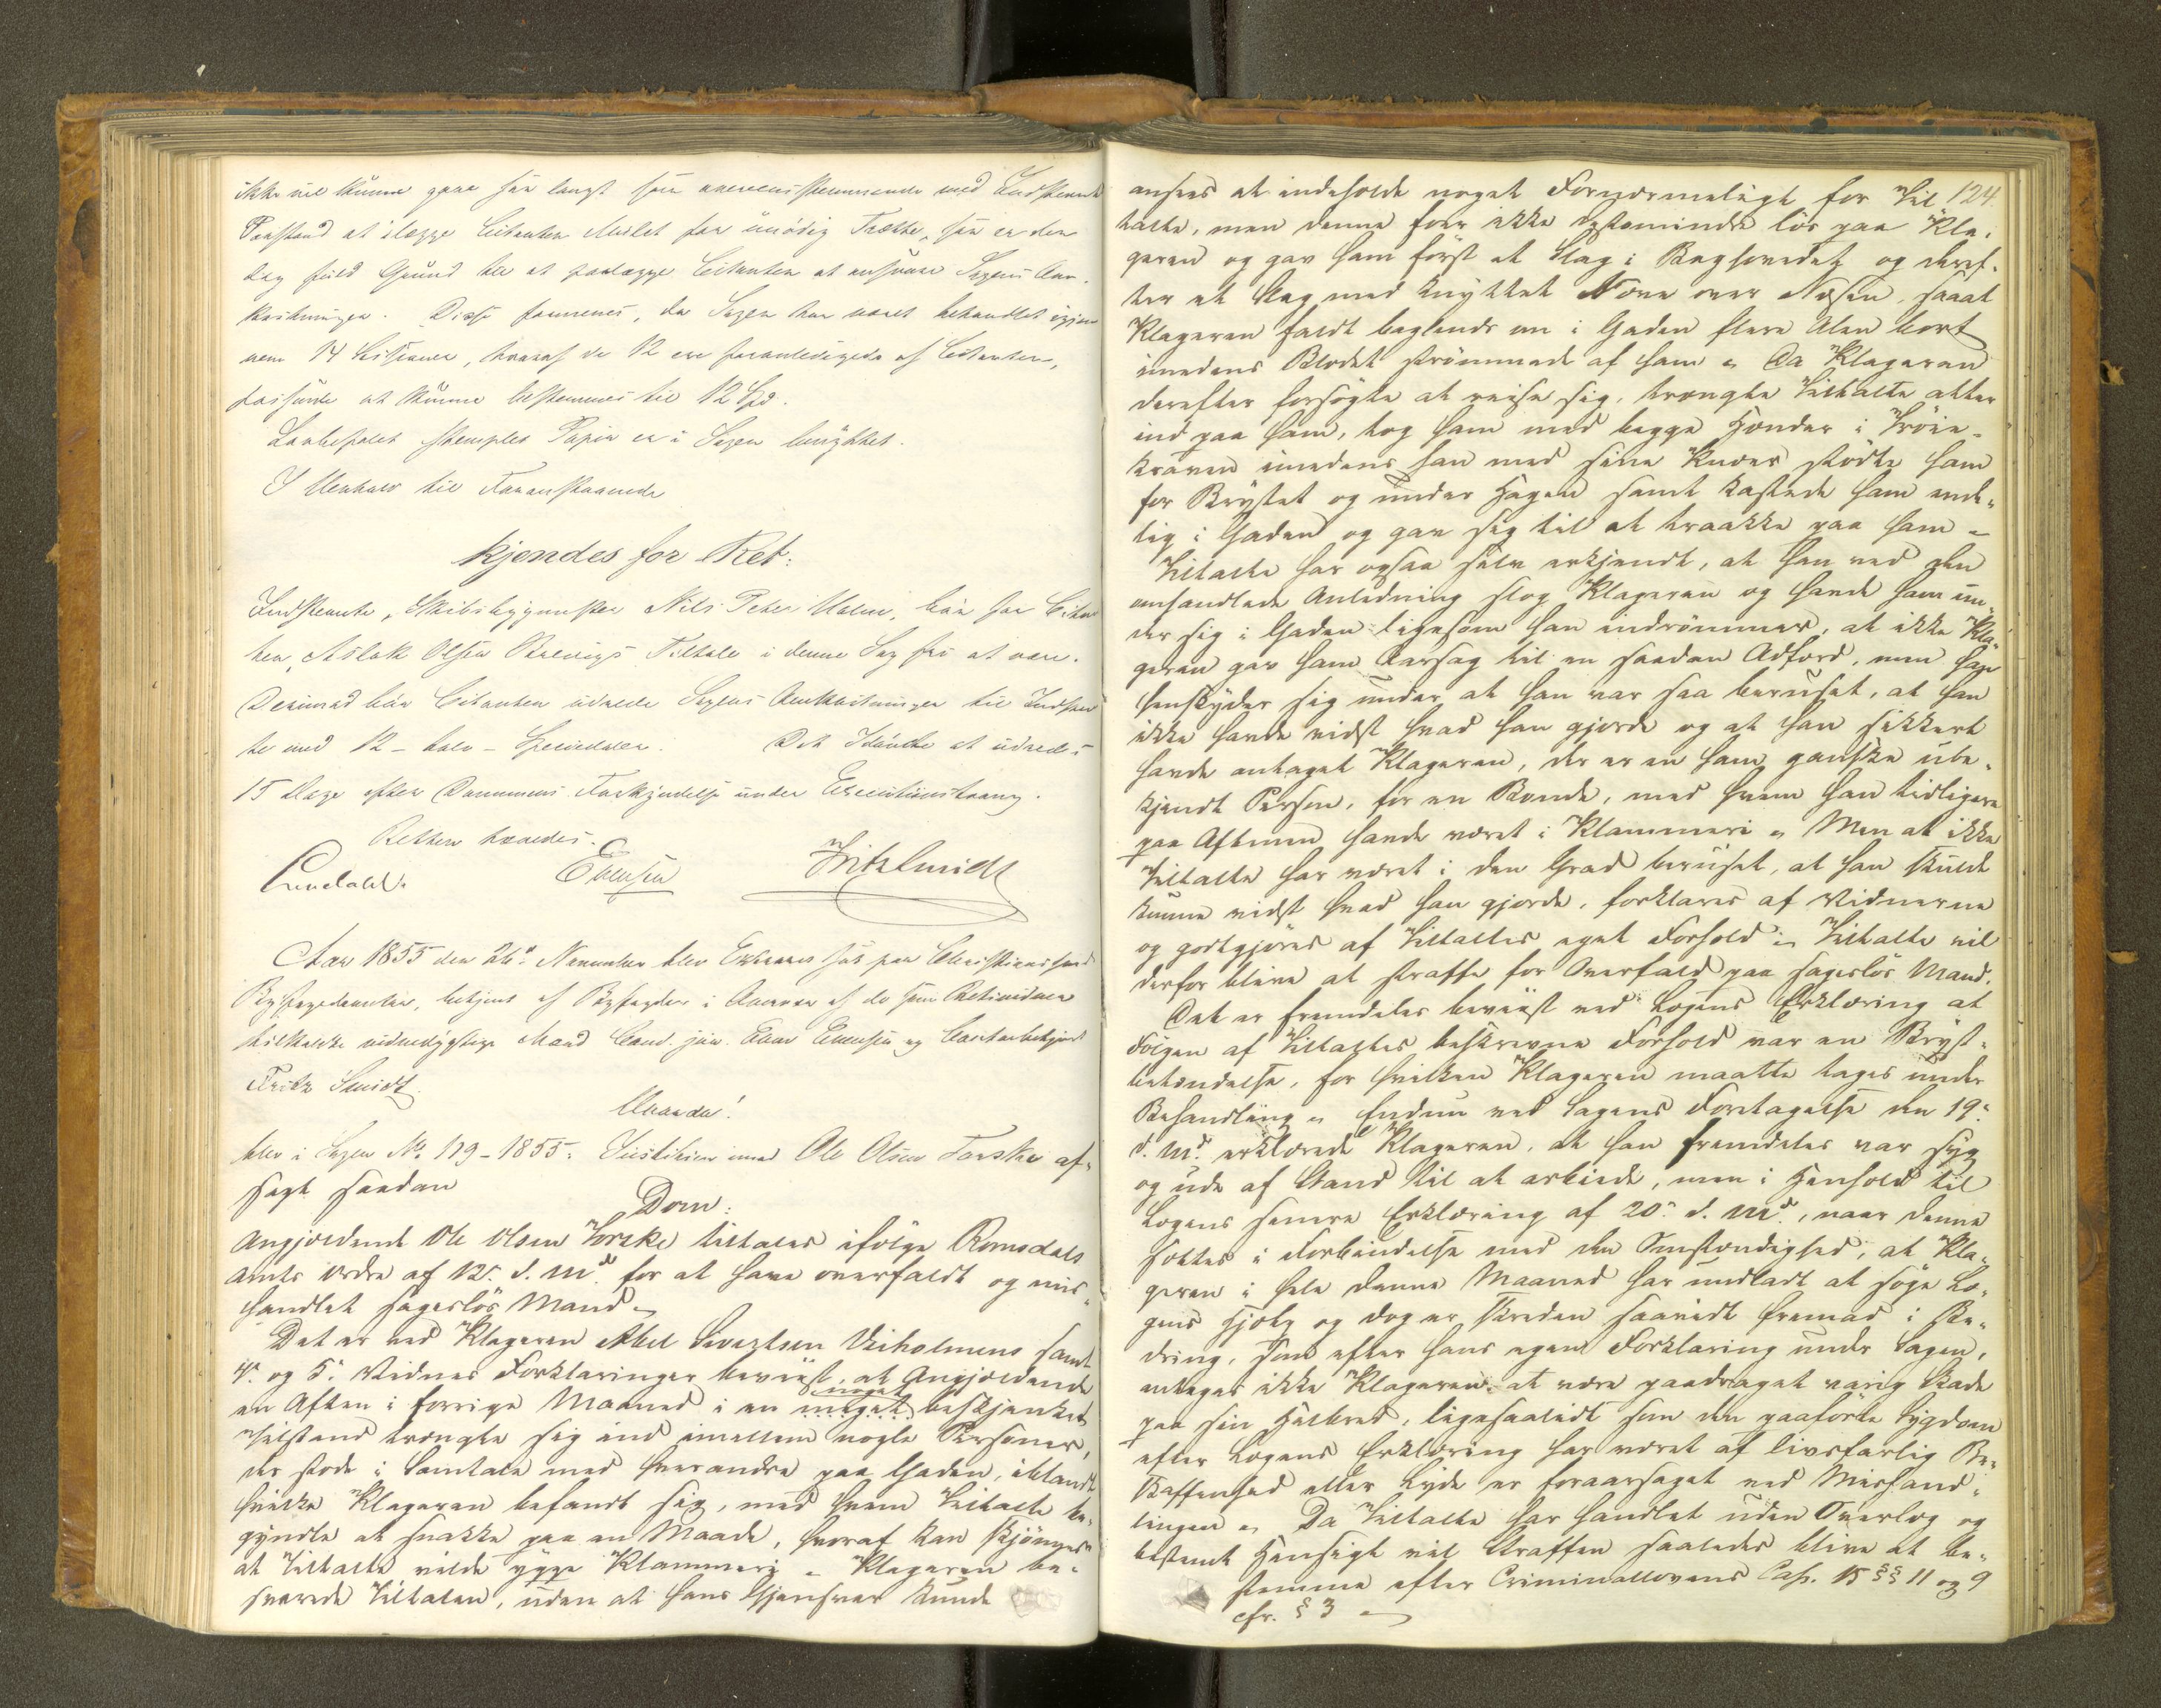 ikke vil kunne gaae saa langt som overensstemmende med Indstevntes
Paastand at ilægge Citanten Mulct for unødig Trætte, saa er der
dog fuld Grund til at paalægge Citanten at ansvare Sagens Om-
kostninger. Disse formenes, da Sagen har været behandlet igjen-
nem 14 Sessioner, hvoraf de 12 ere foranledigede af Citanten,
passende at kunne bestemmes til 12 Spd.
Lovbefalet stemplet Papir er i Sagen benyttet.
I Henhold til Foranstaaende
kjendes for Ret:
Indstevnte, Skibsbygmester Nils Peter bør for Citan-
ten, Aslak Olsen Tiltale i denne Sag fri at være.
Derimod bør Citanten udrede Sagens Omkostninger til Indstevn-
te med 12 - tolv - Speciedaler. Det Idømte at udredes
15 Dage efter Dommens Forkyndelse under Executionstvang.
Retten hævedes.
Evensen Fritz Smidt
Aar 1855 den 26de November blev Extraret sat paa Christianssunds
Byfogedcontoir, betjent af Byfogden i Overvær af de som Retsvidner
tilkaldte vidnedygtige Mænd Cand. jur. Evensen og Contoirbetjent
Fritz Smidt.
Hvorda!
blev i Sagen No 119-1855: Justitien mod Ole Olsen Torske af-
sagt saadan
Dom:
Angjældende Ole Olsen Torske tiltales ifølge Romsdals
Amts Ordre af 12. d. Md. for at have overfaldt og mis-
handlet sagesløs Mand.
Det er ved Klageren Abel Sivertsen Veiholmens samt
4. og 5. Vidnes Forklaringer beviist, at Angjældende
en Aften i forrige Maaned i en meget noget beskjenket
Tilstand trængte sig ind imellem nogle Personer,
der stode i Samtale med hverandre paa Gaden, iblandt
hvilke Klageren befandt sig, med hvem Tiltalte be-
gyndte at snakke paa en Maade, hvoraf kan skjønnes
at Tiltalte vilde yppe Klammeri. Klageren be-
svarede Tiltalen, uden at hans Gjensvar kunde
124.
ansees at indeholde noget Fornærmeligt for Til-
talte, men denne foer ikke destomindre løs paa Kla-
geren og gav ham først et Slag i Baghovedet og deref-
ter et Slag med knyttet Næve over Næsen, saaat
Klageren faldt baglends om i Gaden flere Alen bort
imedens Blodet strømmede af ham. Da Klageren
derefter forsøgte at reise sig, trængte Tiltalte atter
ind paa ham, tog ham med begge Hænder i Trøie-
kraven imedens han med sine Knæer stødte ham
for Brystet og under Hagen samt kastede ham ende-
lig i Gaden og gav sig til at traakke paa ham.
Tiltalte har ogsaa selv erkjendt, at han ved den
omhandlede Anledning slog Klageren og havde ham un-
der sig i Gaden ligesom han indrømmer, at ikke Kla-
geren gav ham Aarsag til en saadan Adfærd, men han
henskyder sig under at han var saa beruset, at han
ikke havde vidst hvad han gjorde og at han sikkert
havde antaget Klageren, der er en ham ganske ube-
kjendt Person, for en Bonde, med hvem han tidligere
paa Aftenen havde været i Klammeri. Men at ikke
Tiltalte har været i den Grad beruset, at han skulde
kunne vidst hvad han gjorde, forklares af Vidnerne
og godtgjøres af Tiltaltes eget Forhold. Tiltalte vil
derfor blive at straffe for Overfald paa sagesløs Mand.
Det er fremdeles beviist ved Lægens Erklæring at
Følgen af Tiltaltes beskrevne Forhold var en Bryst-
betændelse, for hvilken Klageren maatte tages under
Behandling. Endnu ved Sagens Foretagelse den 19.
d. Md. erklærede Klageren, at han fremdeles var syg
og ude af Stand til at arbeide, men i Henhold til
Lægens senere Erklæring af 20. d. Md., naar denne
sættes i Forbindelse med den Omstændighed, at Kla-
geren i hele denne Maaned har undladt at søge Læ-
gens Hjælp og dog er skreden saavidt fremad i Be-
dring, som efter hans egen Forklaring under Sagen,
antages ikke Klageren at være paadraget varig Skade
paa sin Helbred, ligesaalidt som den paaførte Sygdom
efter Lægens Erklæring har været af livsfarlig Be-
skaffenhed eller Lyde er foraarsaget ved Mishand-
lingen. Da Tiltalte har handlet uden Overlæg og
bestemt Hensigt vil Straffen saaledes blive at be-
stemme efter Criminallovens Cap. 15 §§ 11 og 9
cfr. § 3